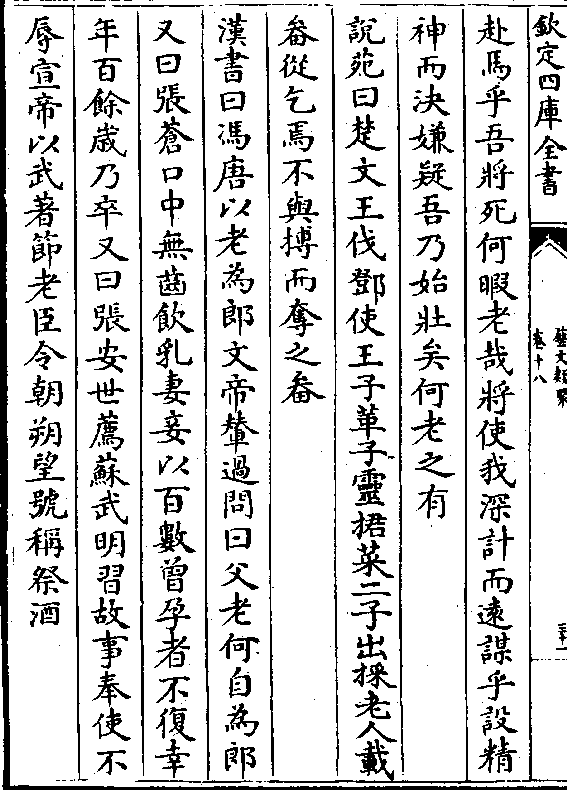 欽定四庫全書
藝文類聚
卷十八
赴馬乎吾將死何暇老哉將使我深計而遠謀乎設精
神而決嫌疑吾乃始壯矣何老之有
說苑曰楚文王伐鄧使王子革子靈捃菜二子出採老人載
畚從乞焉不與搏而奪之畚
漢書曰馮唐以老為郎文帝輦過問曰父老何自為郎
又曰張蒼口中無齒飲乳妻妾以百數曾孕者不復幸
年百餘歲乃卒又曰張安世薦蘇武明習故事奉使不
辱宣帝以武著節老臣令朝朔望號稱祭酒